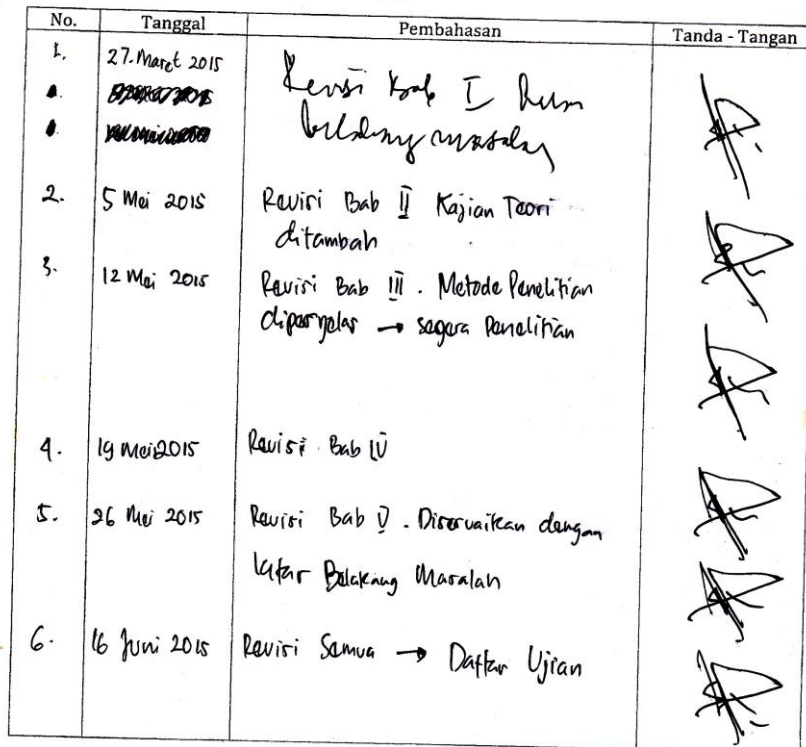 No. Tanggal Pembahasan Tanda - Tangan
1. 27 Maret 2015 Revisi Bab I
masalah
2. 5 Mei 2015 Revisi Bab II Kajian Teori
ditambah
3. 12 Mei 2015 Revisi Bab III. Metode Penelitian
diperjelas → segera Penelitian
4. 19 Mei 2015 Revisi Bab IV
5. 26 Mei 2015 Revisi Bab V. Disesuaikan dengan
latar Belakang Masalah
6. 16 Juni 2015 Revisi Semua → Daftar Ujian